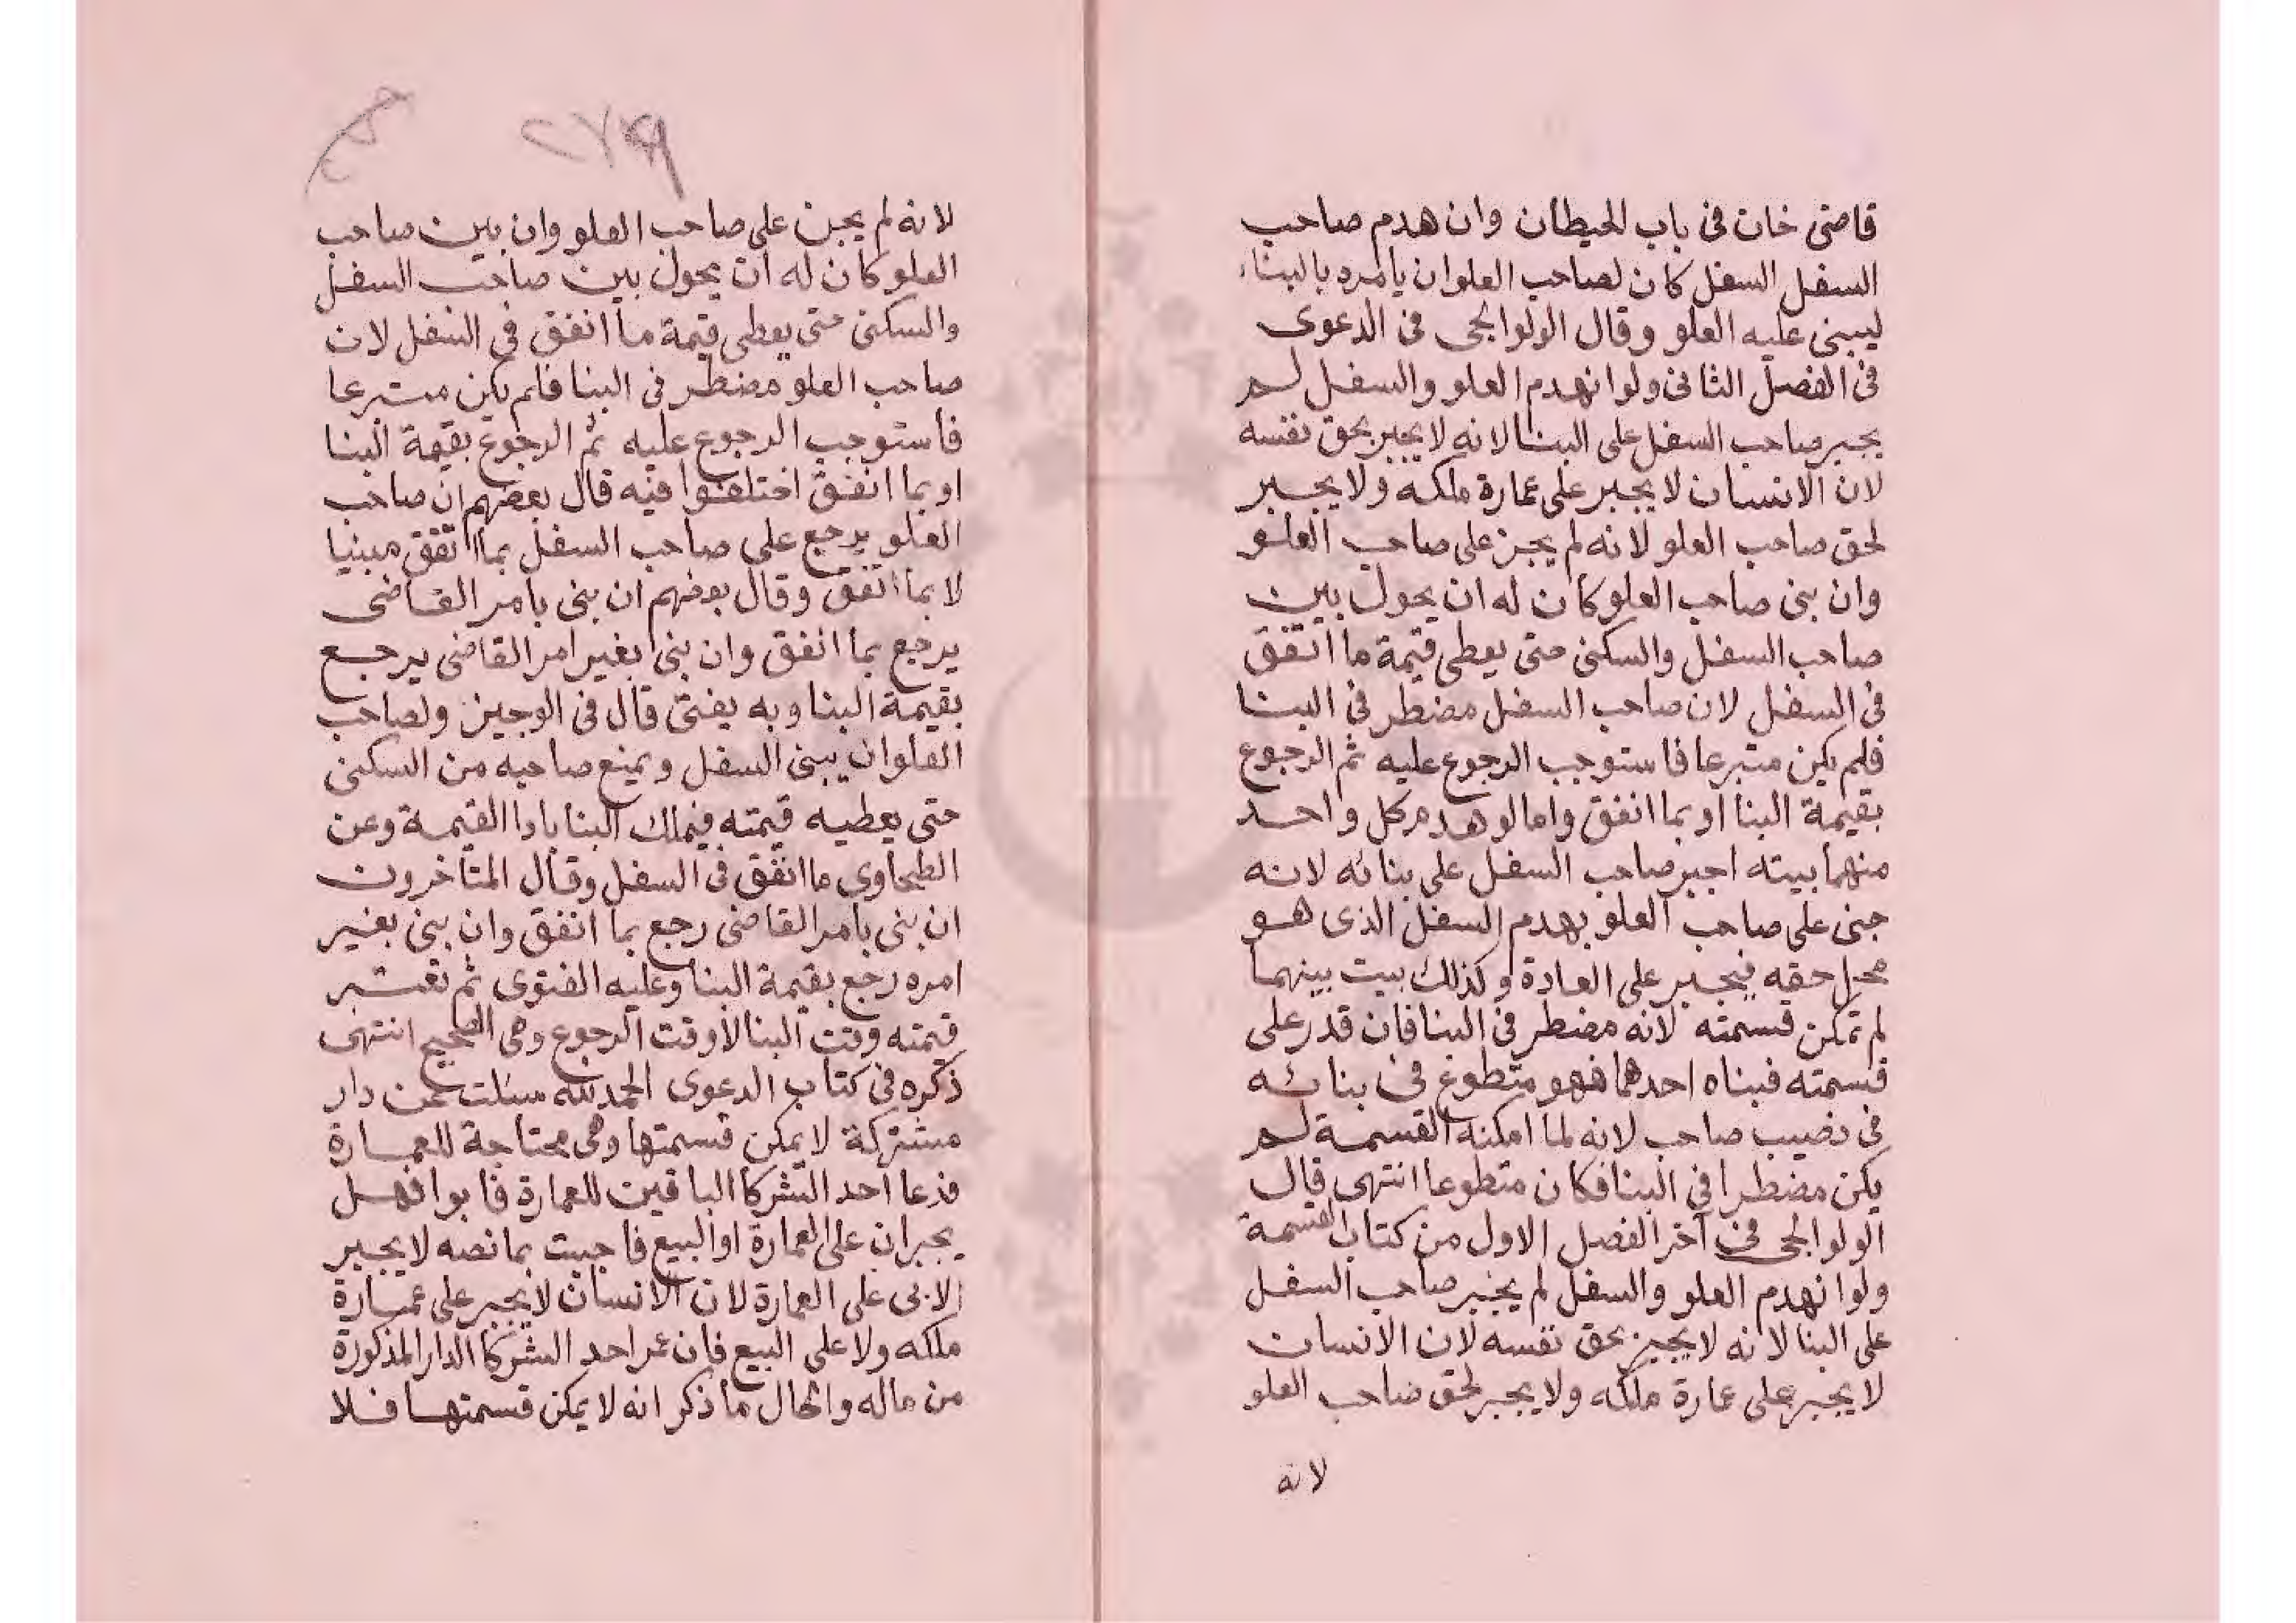 قاضى خان فى باب الحيطان وان هدم صاحب
السفل السفل كان لصاحب العلو ان يامره بالبناء
ليبنى عليه العلو وقال الولوالجى فى الدعوى
فى الفصل الثانى ولو انهدم العلو والسفل لم
يجبر صاحب السفل على البنا لانه لا يجبر بحق نفسه
لان الانسان لا يجبر على عمارة ملكه ولا يجبر
لحق صاحب العلو لانه لم يجن على صاحب العلو
وان بنى صاحب العلو كان له ان يحول بين
صاحب السفل والسكنى حتى يعطى قيمة ما انفق
فى السفل لان صاحب السفل مضطر فى البنا
فلم يكن متبرعا فاستوجب الرجوع عليه ثم الرجوع
بقيمة البنا او بما انفق واما لو هدم كل واحد
منهما بيته اجبر صاحب السفل على بنائه لانه
جنى على صاحب العلو بهدم السفل الذى هو
محل حقه فيجبر على العادة وكذلك بيت بينهما
لم تمكن قسمته لانه مضطر فى البنا فان قدر على
قسمته فبناه احدهما فهو متطوع فى بنائه
فى نصيب صاحب لانه لما امكنه القسمة لم
يكن مضطرا فى البنا فكان متطوعا انتهى قال
الولوالجى فى آخر الفصل الاول من كتاب القسمة
ولو انهدم العلو والسفل لم يجبر صاحب السفل
على البنا لانه لا يجبر بحق نفسه لان الانسان
لا يجبر على عمارة ملكه ولا يجبر لحق صاحب العلو
لانه
لانه لم يجن على صاحب العلو وان بين صاحب
العلو كان له ان يحول بين صاحب السفل
والسكنى حتى يعطى قيمة ما انفق فى السفل لان
صاحب العلو مضطر فى البنا فلم يكن متبرعا
فاستوجب الرجوع عليه ثم الرجوع بقيمة البنا
او بما انفق اختلفوا فيه قال بعضهم ان صاحب
العلو يرجع على صاحب السفل بما انفق مبنيا
لا بما انفق وقال بعضهم ان بنى بامر القاضى
يرجع بما انفق وان بنى بغير امر القاضى يرجع
بقيمة البنا وبه يفتى قال فى الوجيز ولصاحب
العلو ان يبنى السفل ويمنع صاحبه من السكنى
حتى يعطيه قيمته فيملك البنا بادا القيمة وعن
الطحاوى ما انفق فى السفل وقال المتأخرون
ان بنى بامر القاضى رجع بما انفق وان بنى بغير
امره رجع بقيمة البنا وعليه الفتوى ثم تعتبر
قيمته وقت البنا لا وقت الرجوع وهى الصحيح انتهى
ذكره فى كتاب الدعوى الحمد لله سئلت عن دار
مشتركة لا يمكن قسمتها وهى محتاجة للعمارة
فدعا احد الشركا الباقين للعمارة فابوا فهل
يجبران على العمارة او البيع فاجبت بما نصه لا يجبر
الابى على العمارة لان الانسان لا يجبر على عمارة
ملكه ولا على البيع فان عمر احد الشركا الدار المذكورة
من ماله والحال ما ذكر انه لا يمكن قسمتها فلا